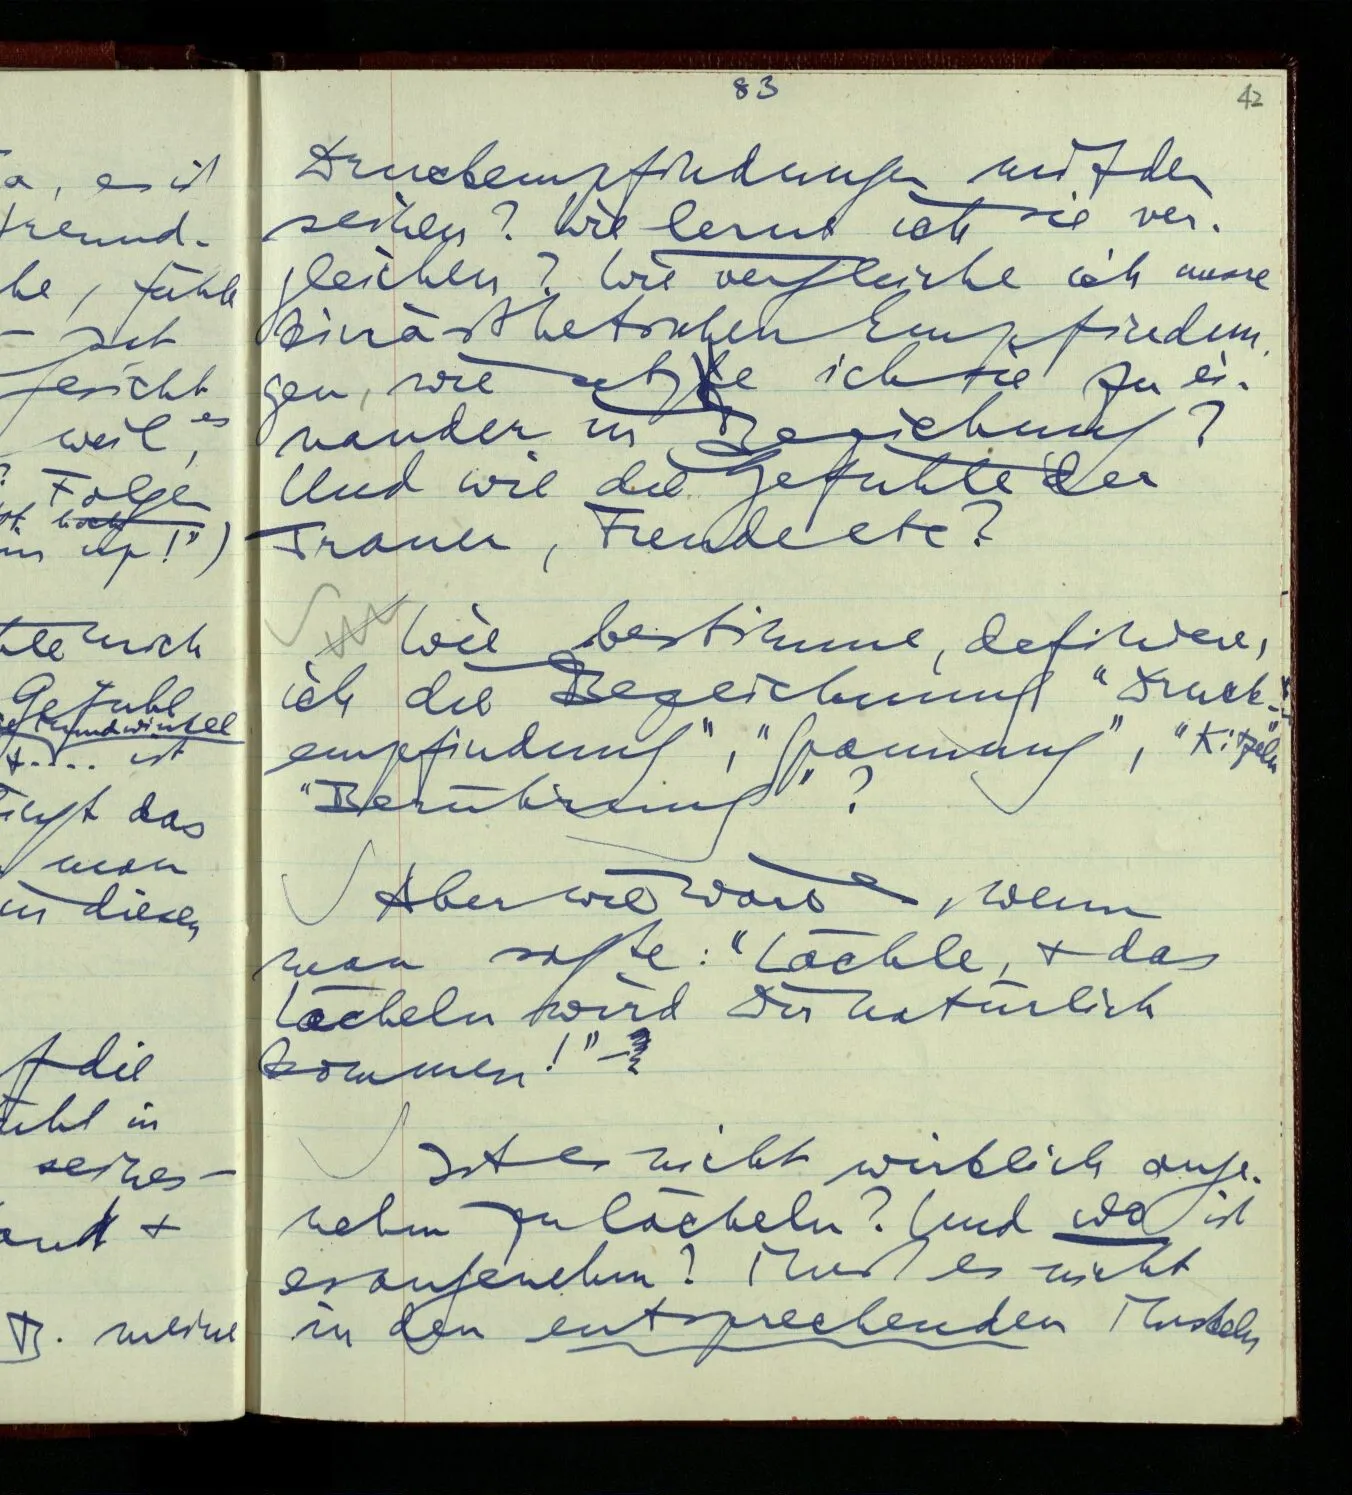 a, es ist
Freund-
he, fühle
Gesicht
weil, es
? Folgen
nicht
Gefühl
Mundwinkel
+.... ist
das
man
in diesen
f die
in
seines –
+
B. meine
83
42
Druckempfindungen mit den
seinen? Wie lernt ich sie ver-
gleichen? Wie vergleiche ich unsre
kinästhetischen Empfindun-
gen, wie setze ich sie zu ei-
nander in Beziehung?
Und wie die Gefühle der
Trauer, Freude etc?
Wie bestimme, definiere,
ich die Bezeichnung "Druck-
empfindung", "Spannung", "Kitzeln"
"Berührung"?
Aber wie wäre es, wenn
man sagte: "Lächle, + das
Lächeln wird Dir natürlich
kommen!" –
Ist es nicht wirklich ange-
nehm zu lächeln? Und wo ist
es angenehm? Muß es nicht
in den entsprechenden Muskeln